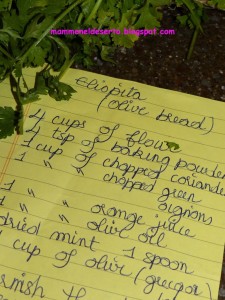 mammaneldeserto.blogspot.com
eliopita
(olive bread)
4 cups of flour
4 tsp of baking powder
1 cup of chopped coriander
1 " " chopped green
onions
1 " " orange juice
1 " " olive oil
dried mint 1 spoon
cup of olive (greegor)